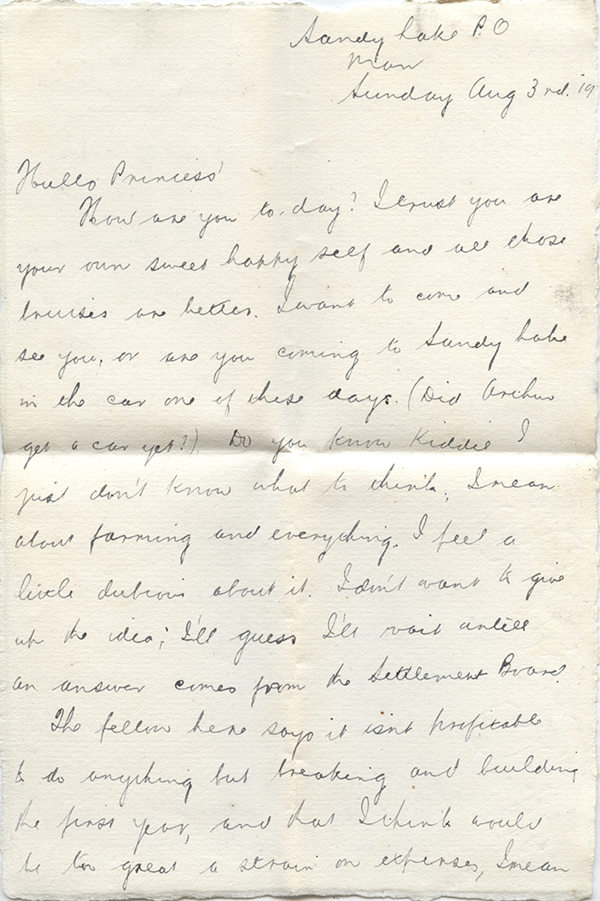 Sandy Lake P.O
Man
Sunday Aug 3rd. '19
Hullo Princess'
How are you to-day? I trust you are
your own sweet happy self and all those
bruises are better. I want to come and
see you, or are you coming to Sandy Lake
in the car one of these days. (Did Arthur
get a car yet?). Do you know Kiddie I
just don't know what to think, I mean
about farming and everything. I feel a
little dubious about it. I don't want to give
up the idea; I'll guess I'll wait untill
an answer comes from the Settlement Board.
The fellow here says it isnt profitable
to do anything but breaking and building
the first year, and that I think would
be too great a strain on expenses, I mean